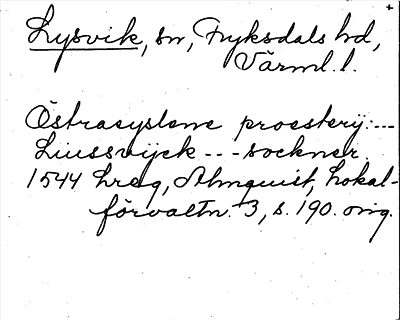 Lysvik, sn, Fryksdals hd,
Värml. l.
Östrasyslene proesterij: ---
Liussvijck --- sockner.
1544 hreg, Almquist, Lokal-
förvaltn. 3, s. 190. orig.